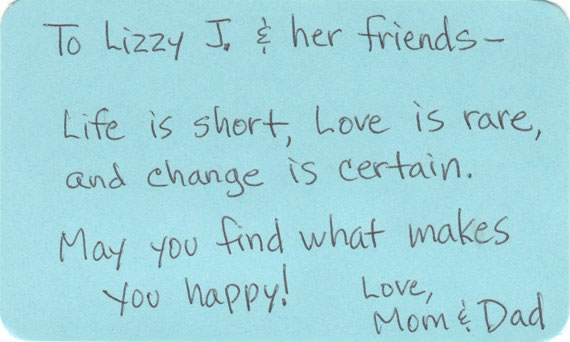 To Lizzy J. & her friends—
Life is short, Love is rare,
and change is certain.
May you find what makes
you happy!
Love,
Mom & Dad